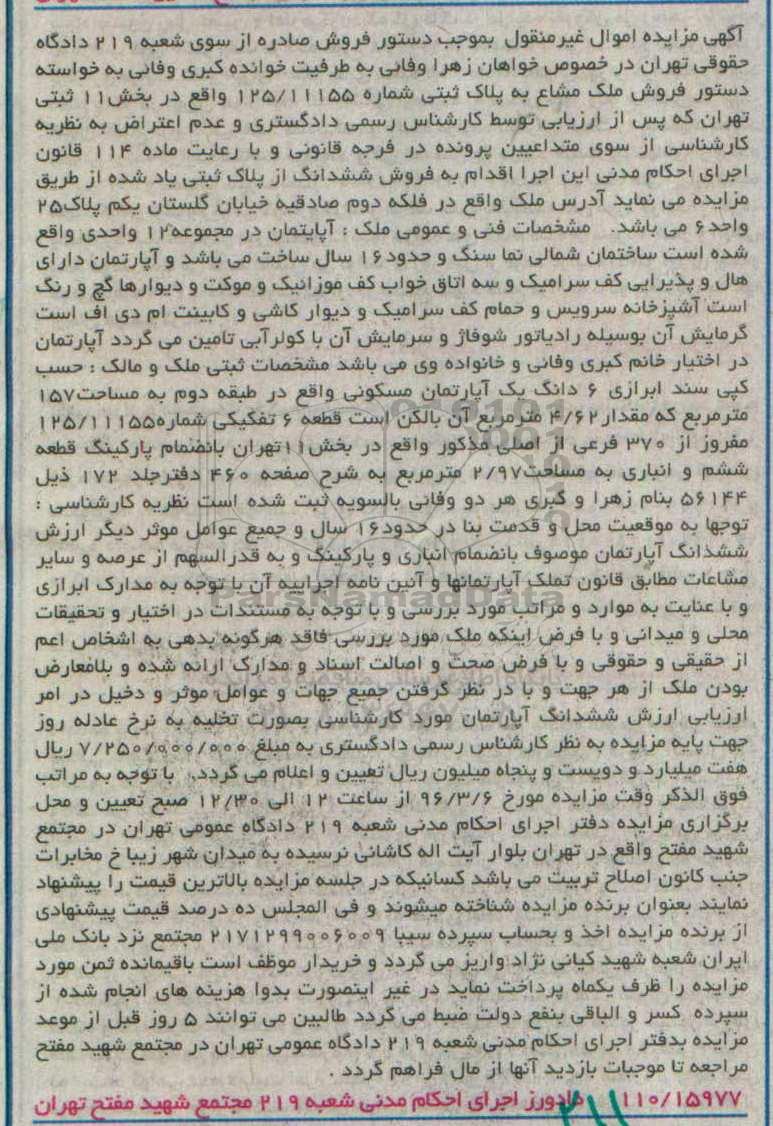 آگهی مزایده اموال غیرمنقول بموجب دستور فروش صادره از سوی شعبه ۲۱۹ دادگاه
حقوقی تهران در خصوص خواهان زهرا وفائی به طرفیت خوانده کبری وفائی به خواسته
دستور فروش ملک مشاع به پلاک ثبتی شماره ۱۲۵/۱۱۱۵۵ واقع در بخش۱۱ ثبتی
تهران که پس از ارزیابی توسط کارشناس رسمی دادگستری و عدم اعتراض به نظریه
کارشناسی از سوی متداعیین پرونده در فرجه قانونی و با رعایت ماده ۱۱۴ قانون
اجرای احکام مدنی این اجرا اقدام به فروش ششدانگ از پلاک ثبتی یاد شده از طریق
مزایده می نماید آدرس ملک واقع در فلکه دوم صادقیه خیابان گلستان یکم پلاک۲۵
واحد۶ می باشد. مشخصات فنی و عمومی ملک : آپایتمان در مجموعه۱۲ واحدی واقع
شده است ساختمان شمالی نما سنگ و حدود۱۶ سال ساخت می باشد و آپارتمان دارای
هال و پذیرایی کف سرامیک و سه اتاق خواب کف موزائیک و موکت و دیوارها گچ و رنگ
است آشپزخانه سرویس و حمام کف سرامیک و دیوار کاشی و کابینت ام دی اف است
گرمایش آن بوسیله رادیاتور شوفاژ و سرمایش آن با کولرآبی تامین می گردد آپارتمان
در اختیار خانم کبری وفائی و خانواده وی می باشد مشخصات ثبتی ملک و مالک : حسب
کپی سند ابرازی ۶ دانگ یک آپارتمان مسکونی واقع در طبقه دوم به مساحت۱۵۷
مترمربع که مقدار۴/۶۲ مترمربع آن بالکن است قطعه ۶ تفکیکی شماره۱۲۵/۱۱۱۵۵
مفروز از ۳۷۰ فرعی از اصلی مذکور واقع در بخش۱۱تهران بانضمام پارکینگ قطعه
ششم و انباری به مساحت۲/۹۷ مترمربع به شرح صفحه ۴۶۰ دفترجلد ۱۷۲ ذیل
۵۶۱۴۴ بنام زهرا و کبری هر دو وفائی بالسویه ثبت شده است نظریه کارشناسی :
توجها به موقعیت محل و قدمت بنا در حدود۱۶ سال و جمیع عوامل موثر دیگر ارزش
ششدانگ آپارتمان موصوف بانضمام انباری و پارکینگ و به قدرالسهم از عرصه و سایر
مشاعات مطابق قانون تملک آپارتمانها و آئین نامه اجراییه آن با توجه به مدارک ابرازی
و با عنایت به موارد و مراتب مورد بررسی و با توجه به مستندات در اختیار و تحقیقات
محلی و میدانی و با فرض اینکه ملک مورد بررسی فاقد هرگونه بدهی به اشخاص اعم
از حقیقی و حقوقی و با فرض صحت و اصالت اسناد و مدارک ارائه شده و بلامعارض
بودن ملک از هر جهت و با در نظر گرفتن جمیع جهات و عوامل موثر و دخیل در امر
ارزیابی ارزش ششدانگ آپارتمان مورد کارشناسی بصورت تخلیه به نرخ عادله روز
جهت پایه مزایده به نظر کارشناس رسمی دادگستری به مبلغ ۷/۲۵۰/۰۰۰/۰۰۰ ریال
هفت میلیارد و دویست و پنجاه میلیون ریال تعیین و اعلام می گردد. با توجه به مراتب
فوق الذکر وقت مزایده مورخ ۹۶/۳/۶ از ساعت ۱۲ الی ۱۲/۳۰ صبح تعیین و محل
برگزاری مزایده دفتر اجرای احکام مدنی شعبه ۲۱۹ دادگاه عمومی تهران در مجتمع
شهید مفتح واقع در تهران بلوار آیت اله کاشانی نرسیده به میدان شهر زیبا خ مخابرات
جنب کانون اصلاح تربیت می باشد کسانیکه در جلسه مزایده بالاترین قیمت را پیشنهاد
نمایند بعنوان برنده مزایده شناخته میشوند و فی المجلس ده درصد قیمت پیشنهادی
از برنده مزایده اخذ و بحساب سپرده سیبا ۲۱۷۱۲۹۹۰۰۶۰۰۹ مجتمع نزد بانک ملی
ایران شعبه شهید کیانی نژاد واریز می گردد و خریدار موظف است باقیمانده ثمن مورد
مزایده را ظرف یکماه پرداخت نماید در غیر اینصورت بدوا هزینه های انجام شده از
سپرده کسر و الباقی بنفع دولت ضبط می گردد طالبین می توانند ۵ روز قبل از موعد
مزایده بدفتر اجرای احکام مدنی شعبه ۲۱۹ دادگاه عمومی تهران در مجتمع شهید مفتح
مراجعه تا موجبات بازدید آنها از مال فراهم گردد .
۱۱۰/۱۵۹۷۷ دادورز اجرای احکام مدنی شعبه ۲۱۹ مجتمع شهید مفتح تهران
ParsNamadData